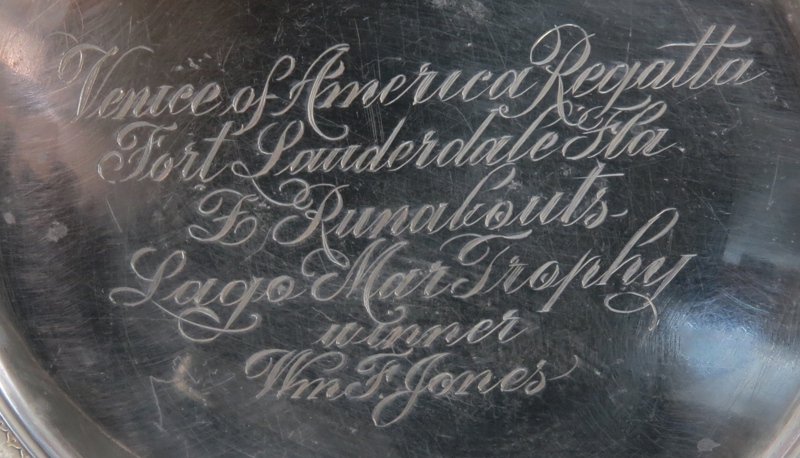 Venice of America Regatta
Fort Lauderdale Fla.
"E" Runabouts
Lago Mar Trophy
winner
Wm F. Jones